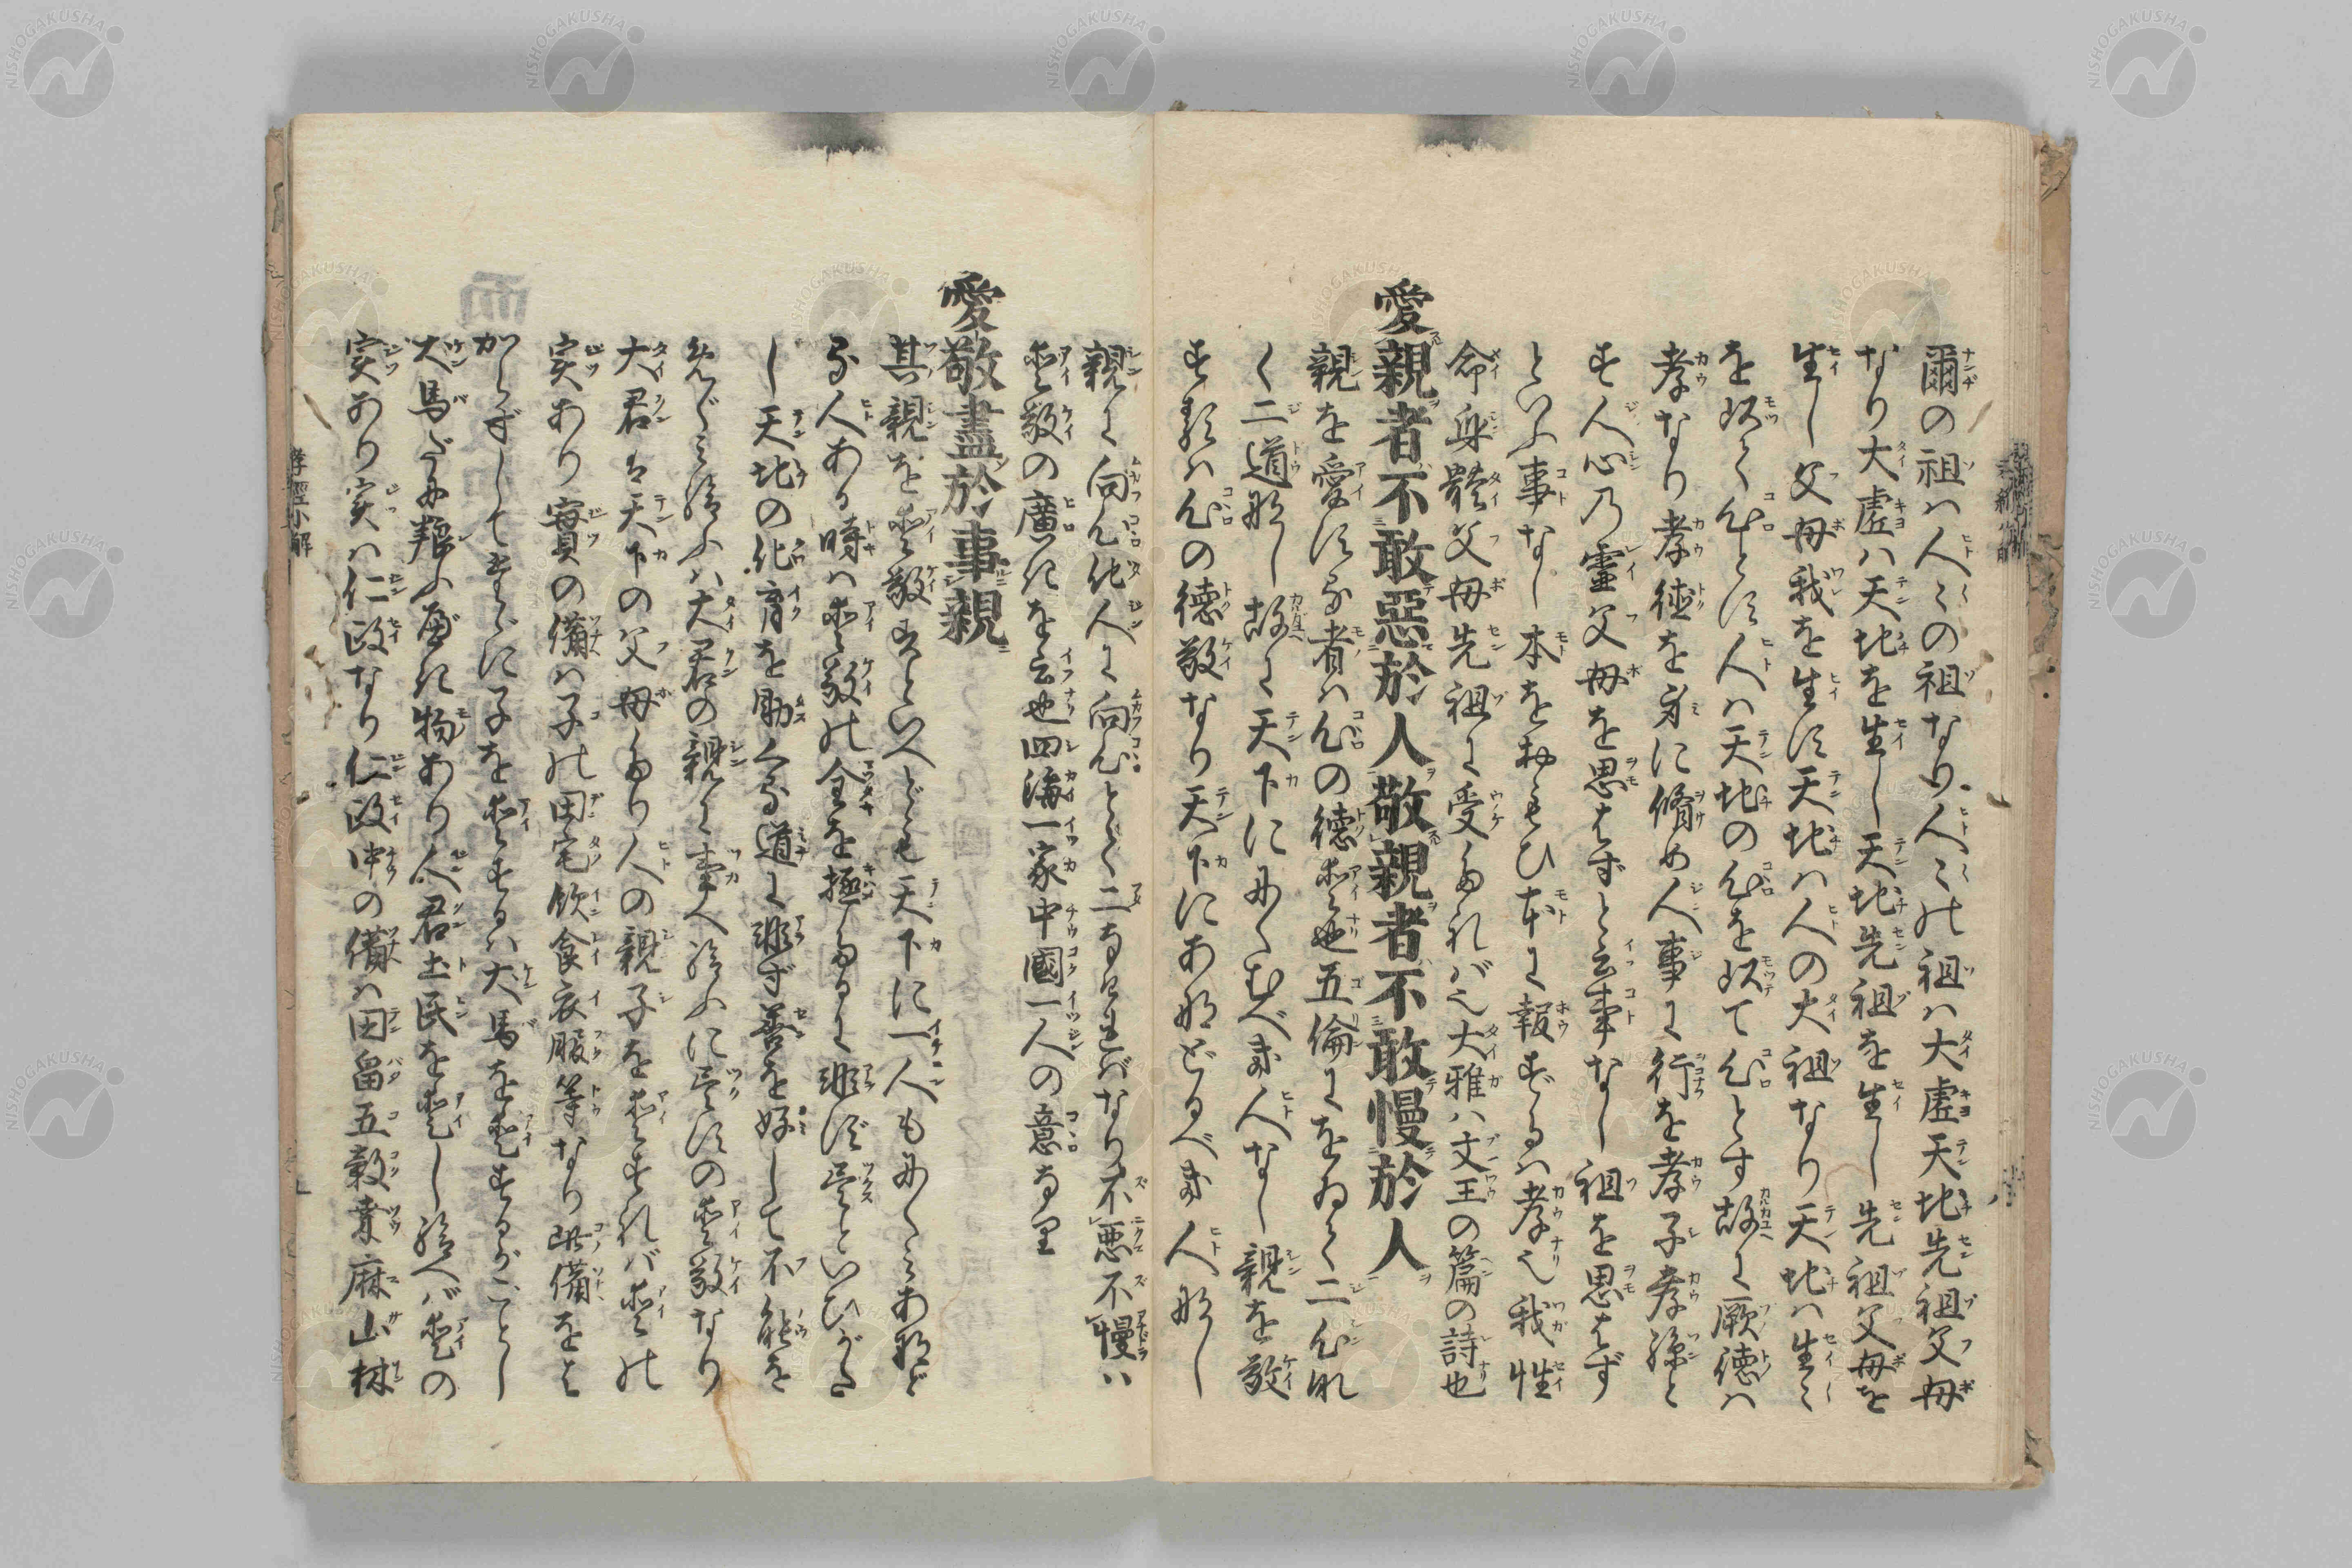 爾の祖ハ人〻の祖なり人〻の祖ハ大虚天地先祖父母
なり大虚ハ天地を生し天地先祖を生し先祖父母を
生し父母我を生ず天地ハ人の大祖なり天地ハ生〻
を以て心とす人ハ天地の心を以て心とす故に厥徳ハ
孝なり孝徳を身に脩め人事に行を孝子孝孫と
す人心の霊父母を思はずと云事なし祖を思はず
といふ事なし本をおもひ本に報ずるハ孝也我性
命身體父母先祖に受たれバ也大雅ハ文王の篇の詩也
愛親者不敢惡於人敬親者不敢慢於人
親を愛する者ハ心の徳愛也五倫にをゐて二心な
く二道なし故に天下ににくむべき人なし親を敬
する ハ心の徳敬なり天下にあなどるべき人なし
親に向ふ心他人に向ふ心とて二なければなり不悪不慢ハ
愛敬の廣きを云也四海一家中國一人の意なり
愛敬盡於事親
其親を愛敬すといへども天下に一人もにくみあなど
る人ある時ハ愛敬の全を極たるに非ず盡といひがた
し天地の化育を助くる道に非ず善を好して不能を
矜 給ふハ大君の親に事へ給ふに盡すの愛敬なり
大君は天下の父母たり人の親子を愛すれバ愛の
実あり寳の備ハ子の田宅飲食衣服等なり此備をよ
からずしてまさに子を愛するハ犬馬を愛するがごとし
犬馬だにも 物あり人君士民を愛し給へバ愛の
実あり実ハ仁政なり仁政中の備ハ田畠五穀桒麻山林
孝經小解